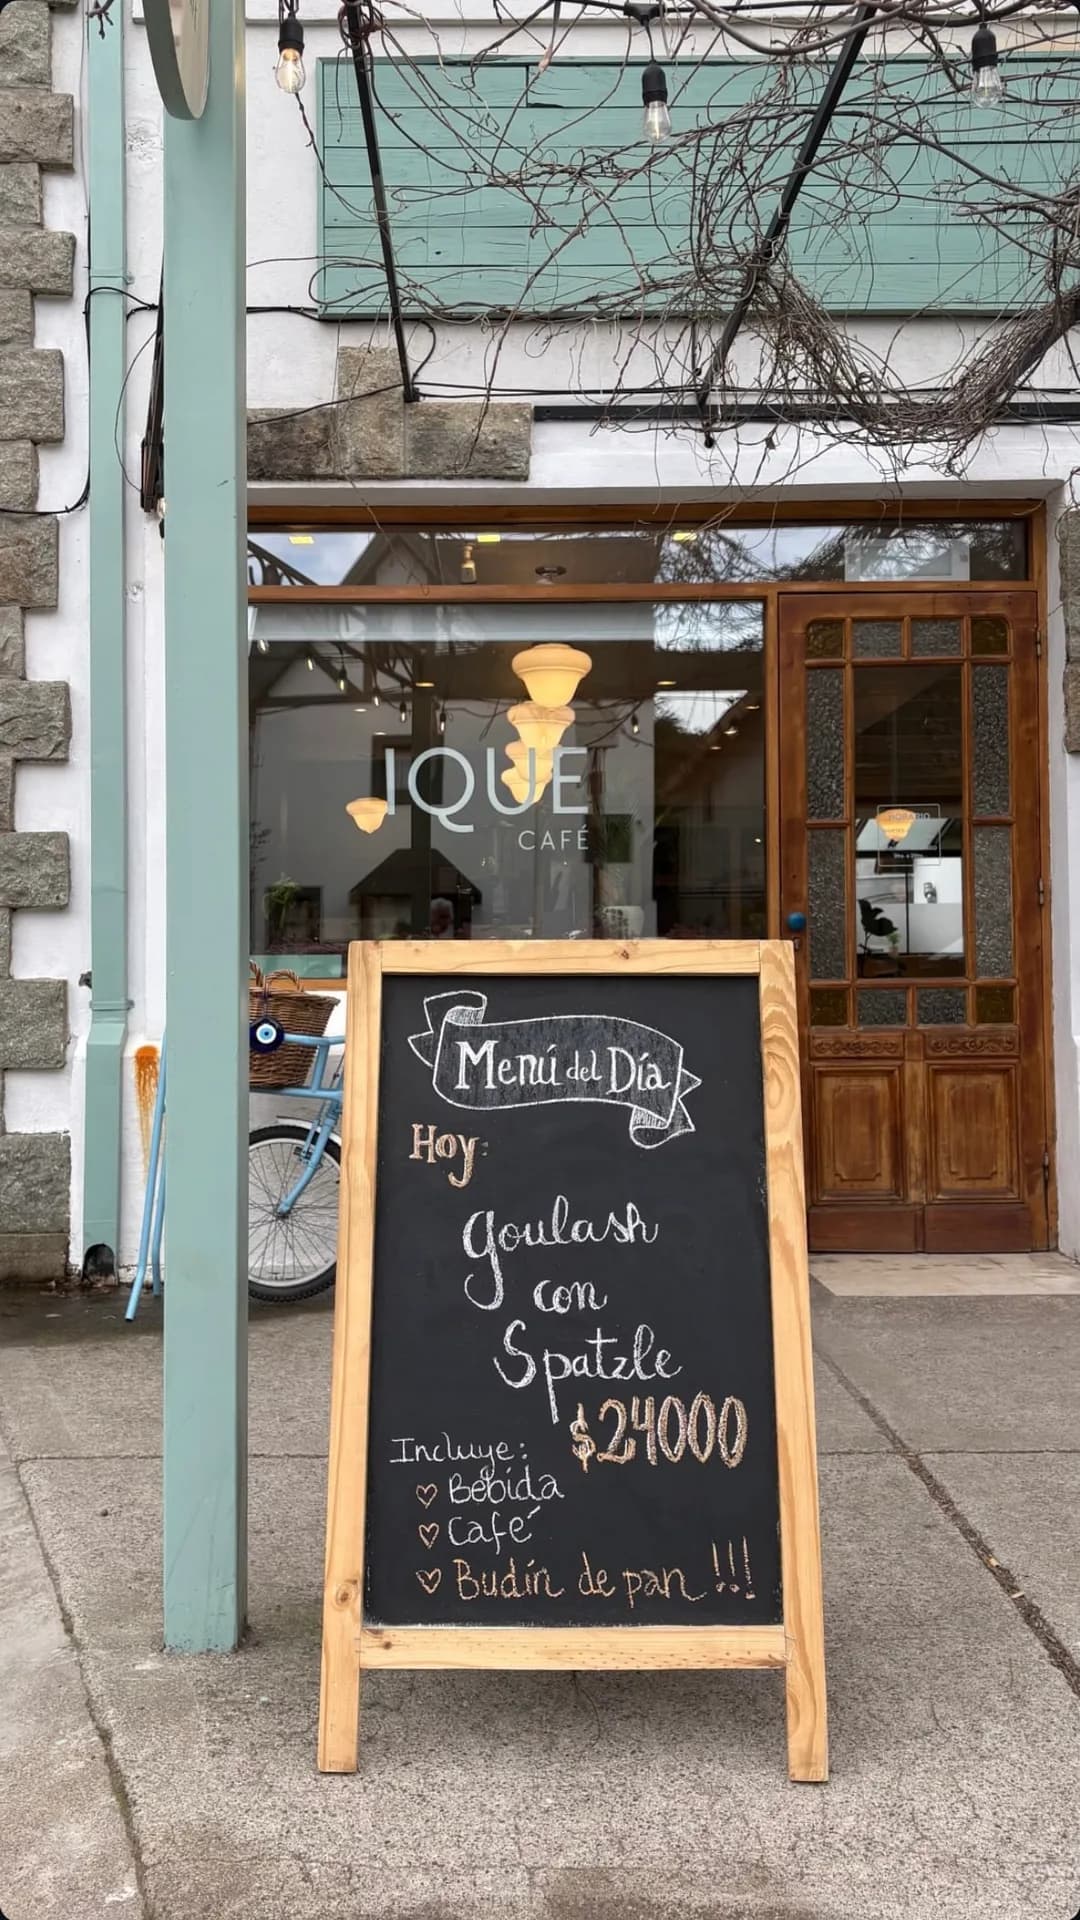 IQUE
CAFÉ
HORARIO
Menú del Día
Hoy:
goulash
con
Spatzle
$24000
Incluye:
♡ Bebida
♡ Café
♡ Budín de pan !!!